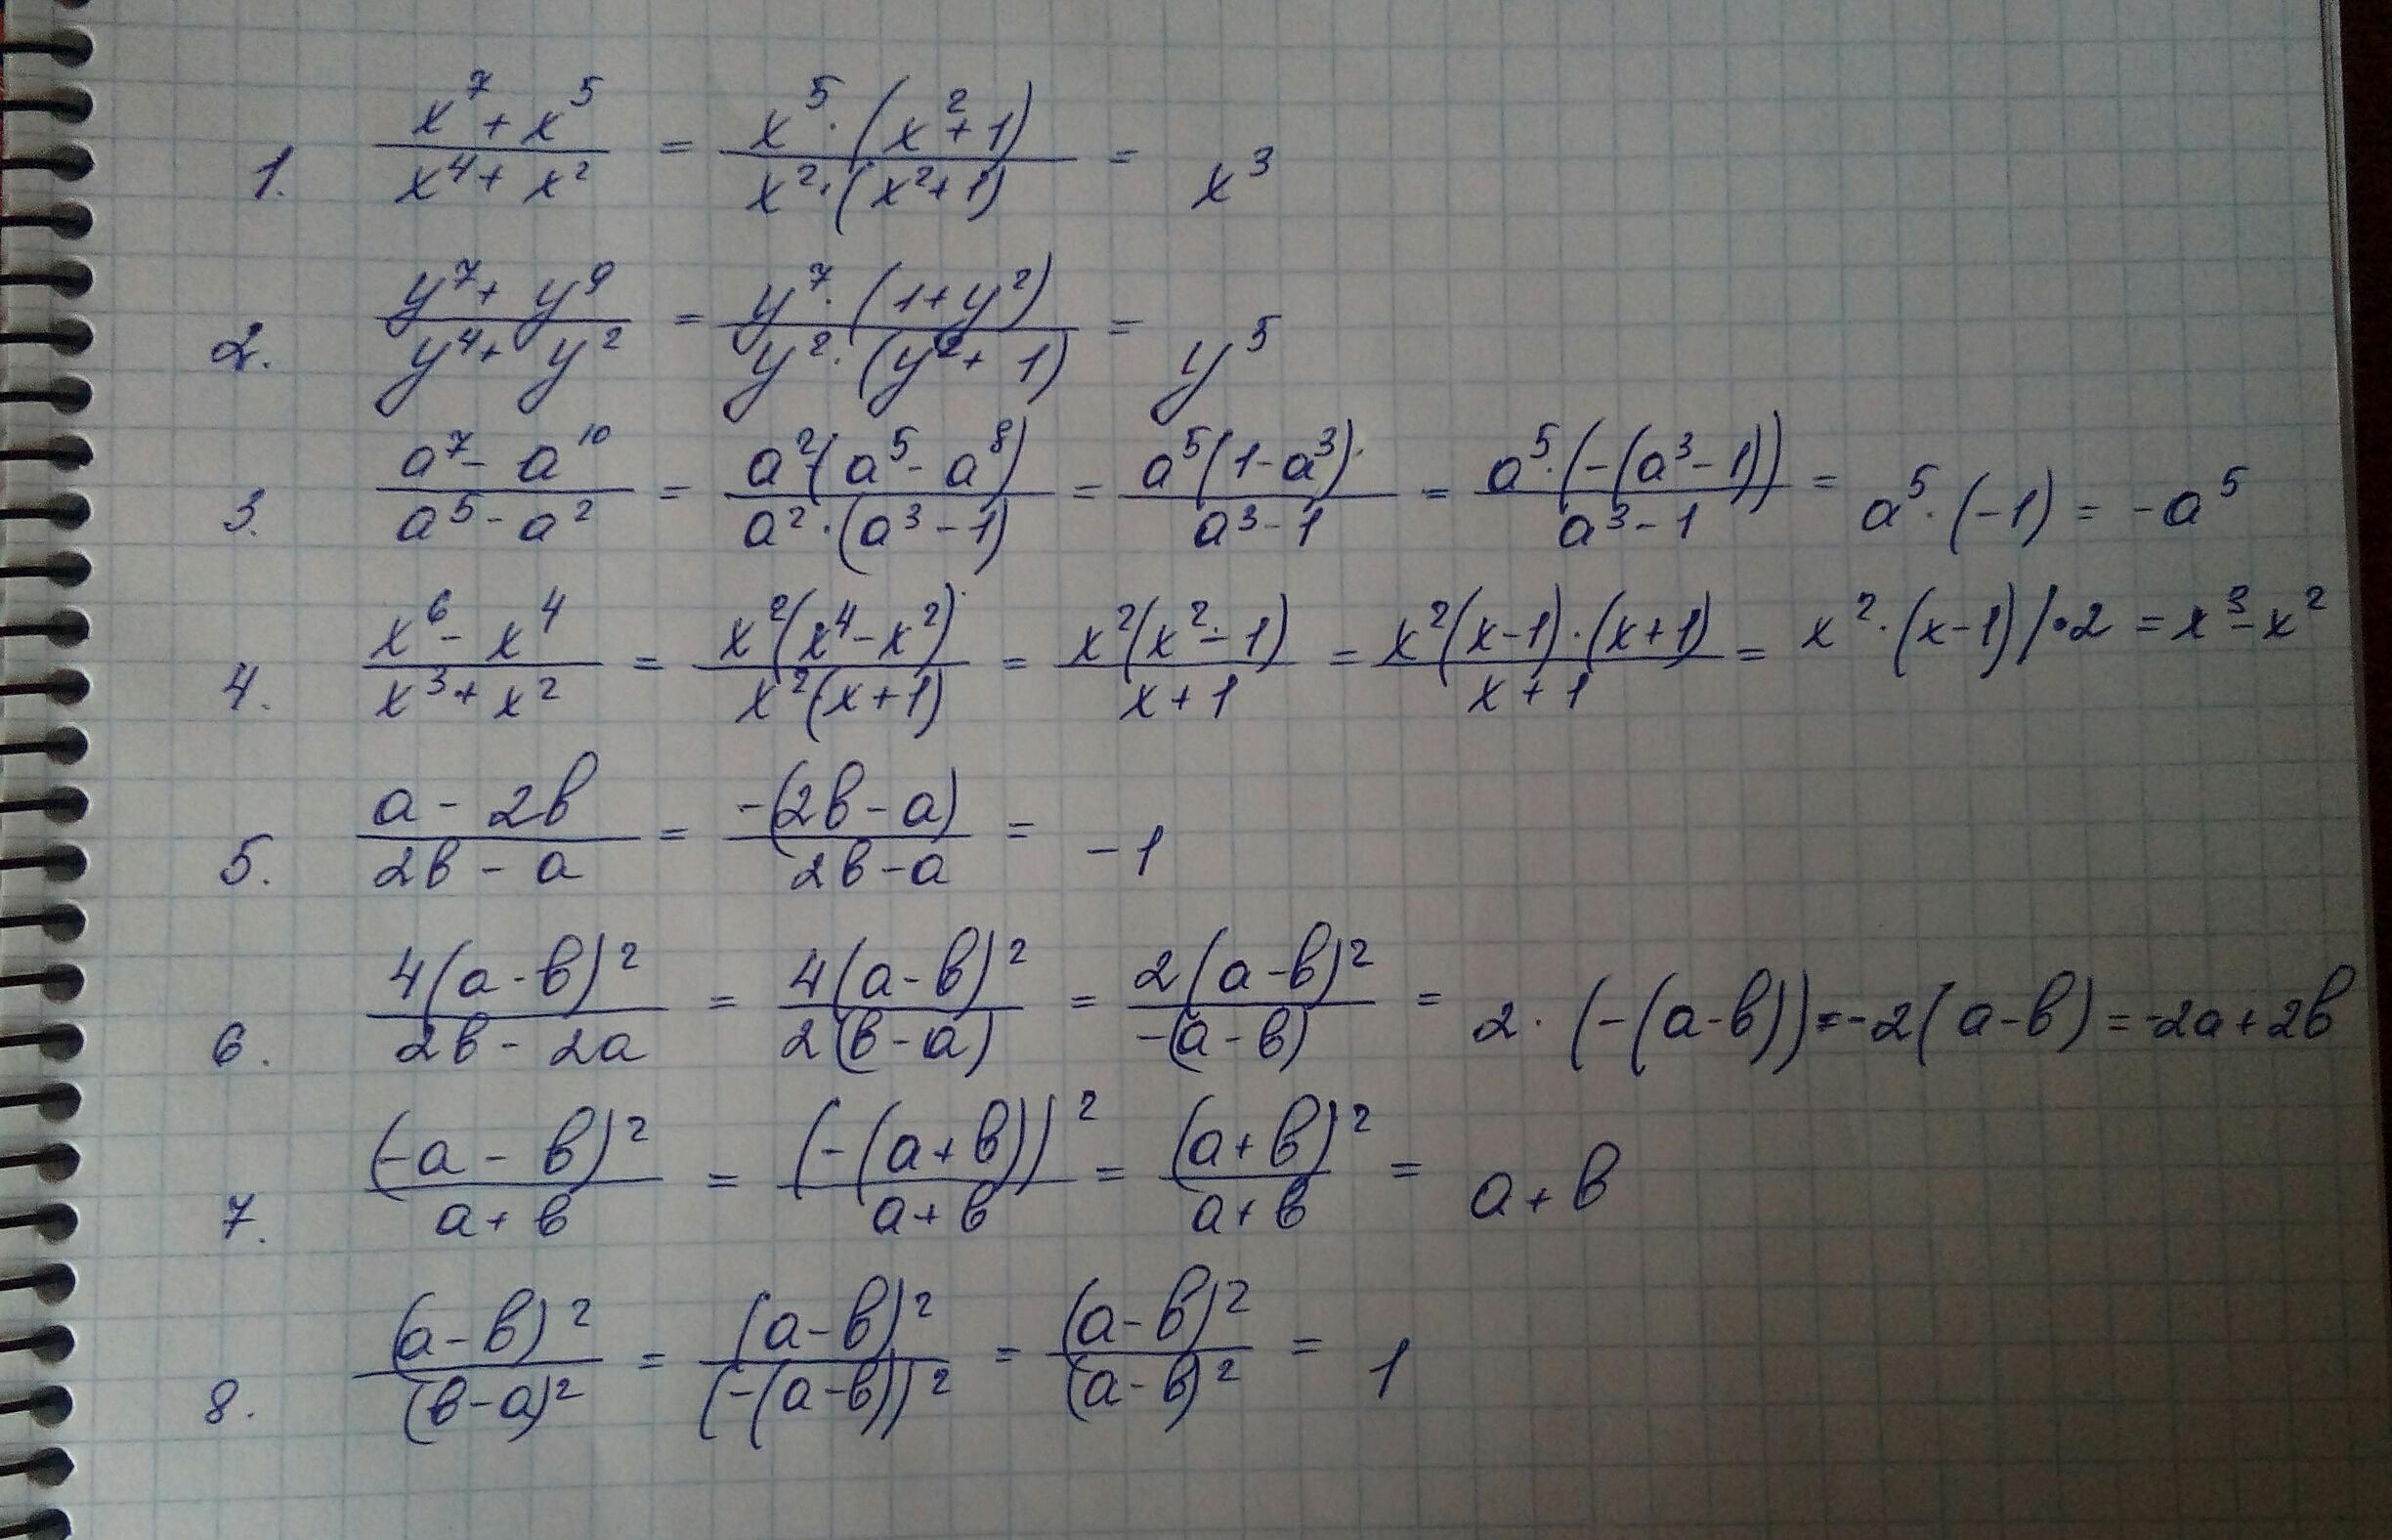 1. (x⁷ + x⁵)/(x⁴ + x²) = (x⁵ · (x² + 1))/(x² · (x² + 1)) = x³
2. (y⁷ + y⁹)/(y⁴ + y²) = (y⁷ · (1 + y²))/(y² · (y² + 1)) = y⁵
3. (a⁷ - a¹⁰)/(a⁵ - a²) = (a²(a⁵ - a⁸))/(a² · (a³ - 1)) = (a⁵(1 - a³))/(a³ - 1) = (a⁵ · (-(a³ - 1)))/(a³ - 1) = a⁵ · (-1) = -a⁵
4. (x⁶ - x⁴)/(x³ + x²) = (x²(x⁴ - x²))/(x²(x + 1)) = (x²(x² - 1))/(x + 1) = (x²(x - 1) · (x + 1))/(x + 1) = x² · (x - 1) / · 2 = x³ - x²
5. (a - 2b)/(2b - a) = (-(2b - a))/(2b - a) = -1
6. (4(a - b)²)/(2b - 2a) = (4(a - b)²)/(2(b - a)) = (2(a - b)²)/(-(a - b)) = 2 · (-(a - b)) = -2(a - b) = -2a + 2b
7. ((-a - b)²)/(a + b) = ((-(a + b))²)/(a + b) = ((a + b)²)/(a + b) = a + b
8. ((a - b)²)/((b - a)²) = ((a - b)²)/((-(a - b))²) = ((a - b)²)/((a - b)²) = 1